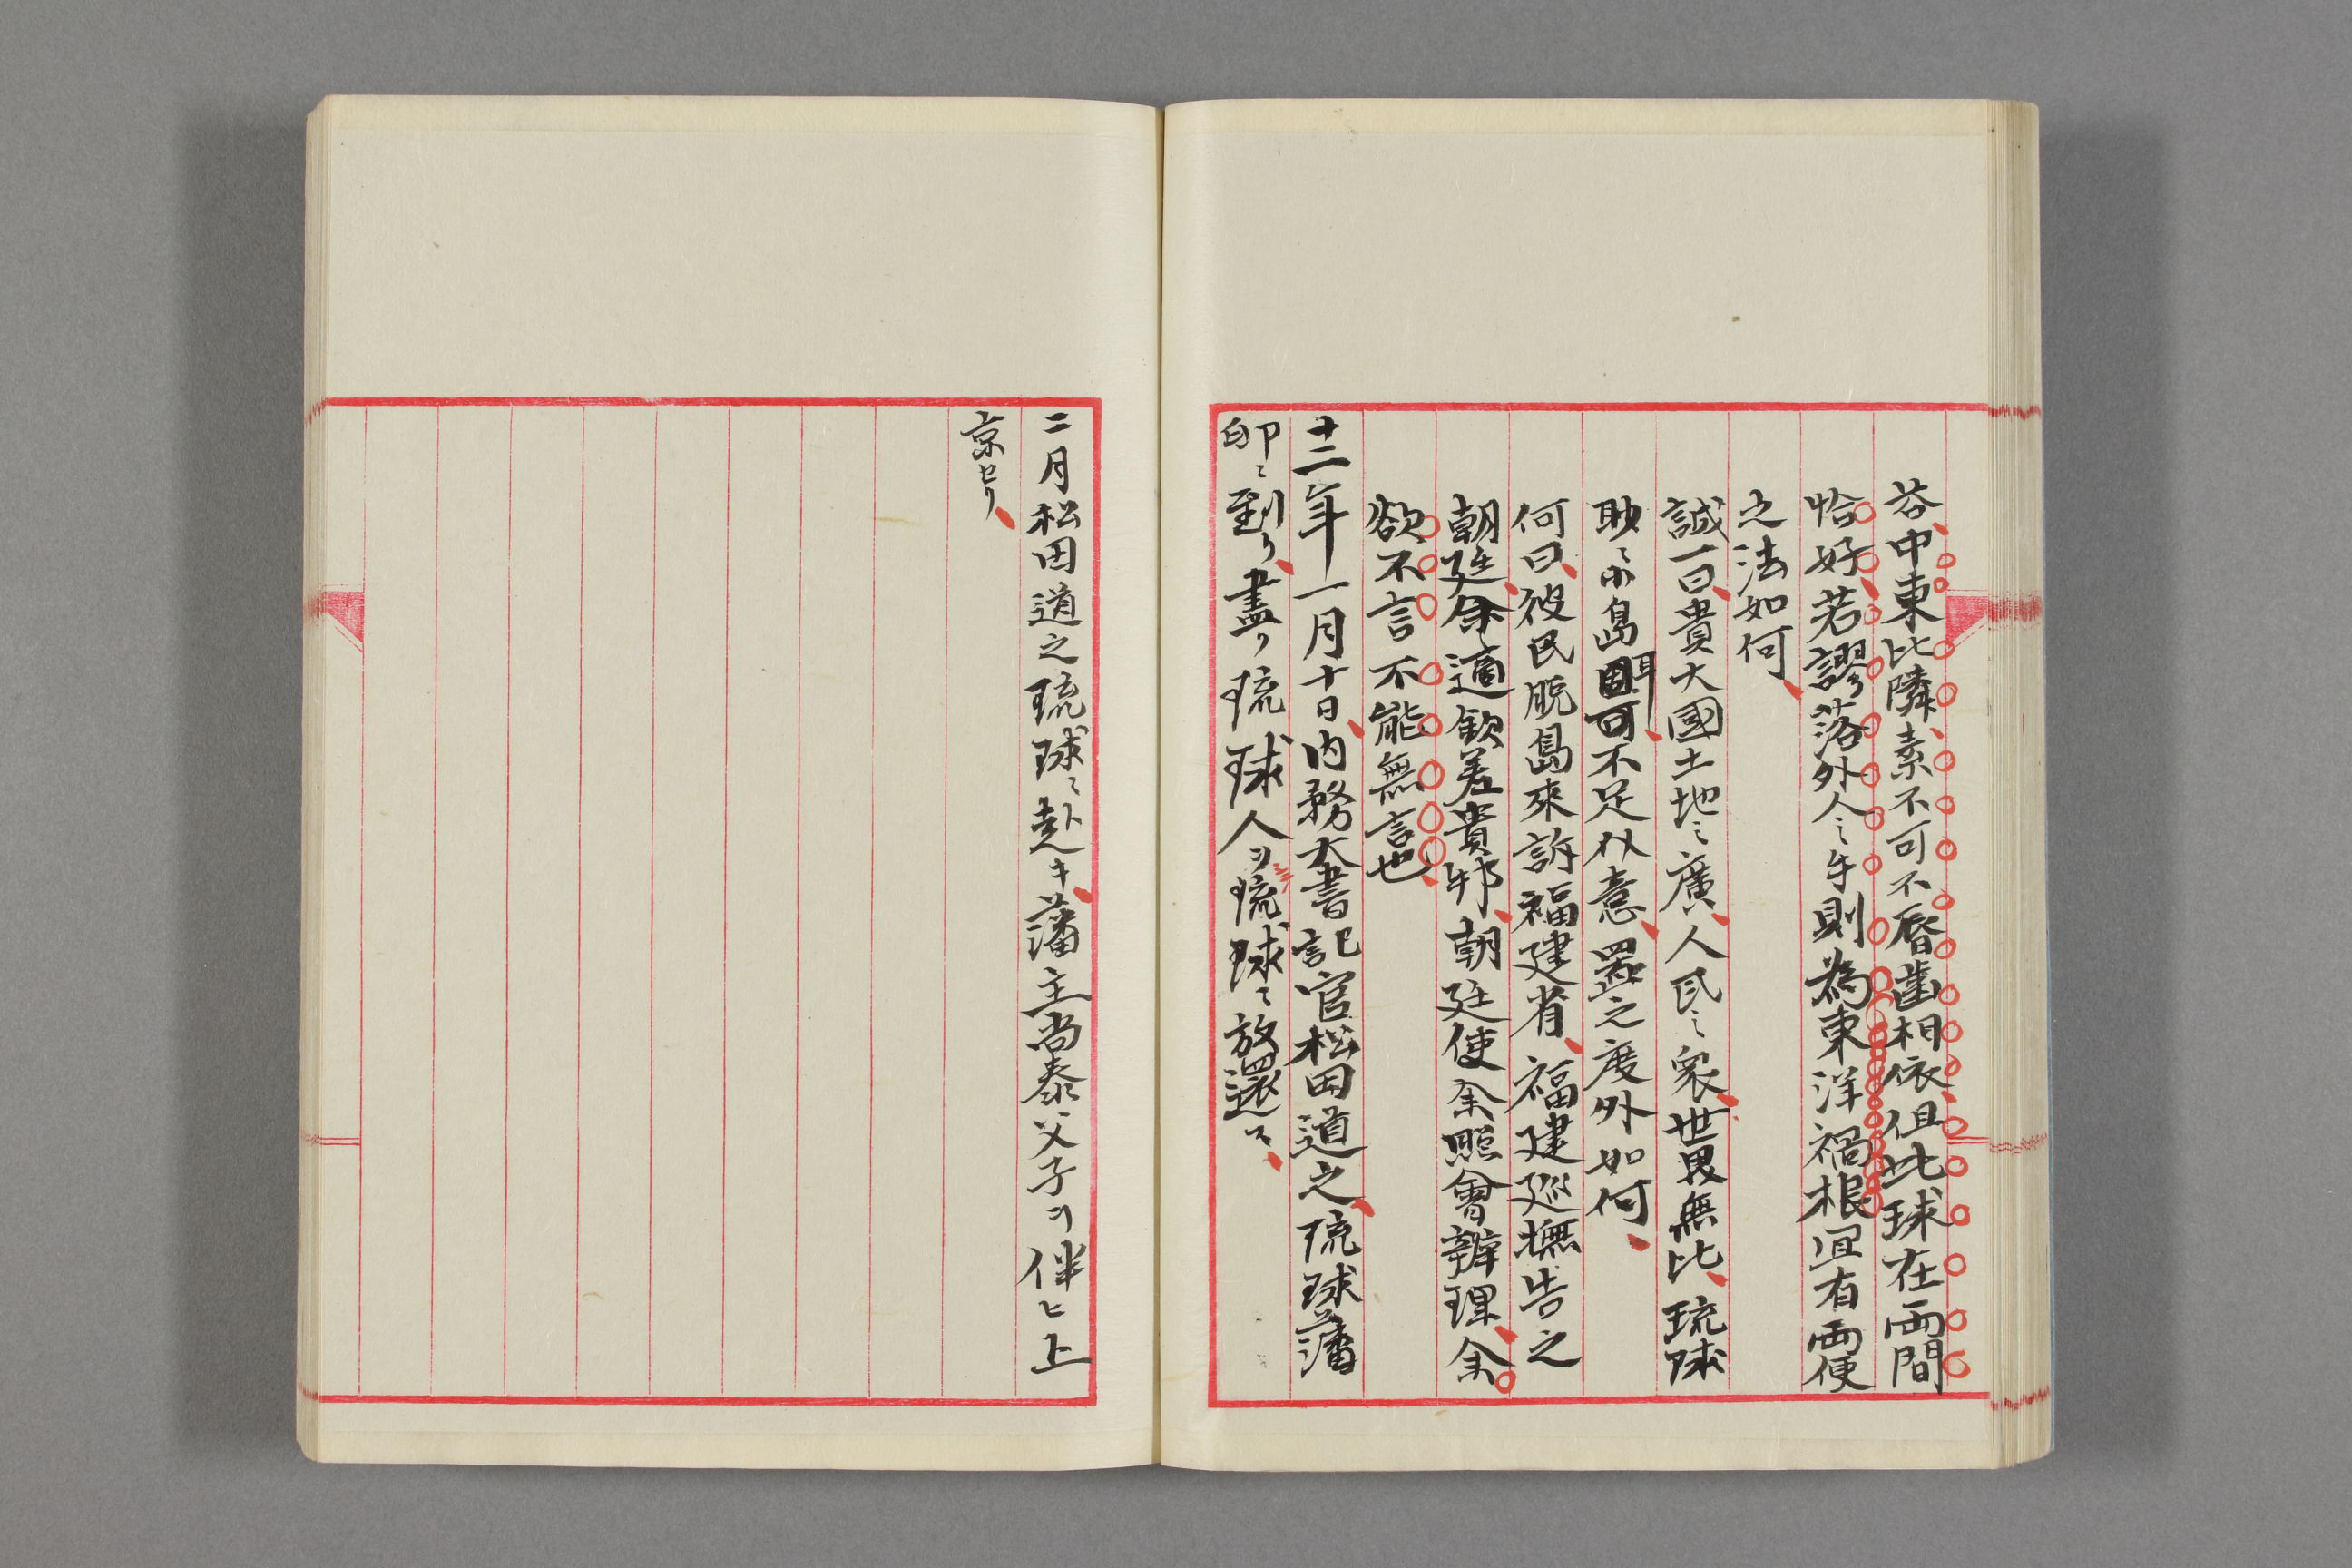 答、中東比隣、素不可不唇齒相依、但此球在両間
恰好、若謬落外人之手則為東洋禍根宜有両便
之法如何、
誠一曰、貴大國土地之廣、人民之衆、世界無比、琉球
眇々小島耳、固可不足以意、置之度外如何、
何曰、彼民脱島來訴福建省、福建巡撫告之
朝廷、余適欽差貴邦、朝廷使余照會辨理、余
欲不言不能無言也、
十二年一月十日、内務大書記官松田道之、琉球藩
邸ニ到リ、盡ク琉球人ヲ琉球ニ放還ス、
二月松田道之琉球ニ赴キ、藩主尚泰父子ヲ伴ヒ上
京セリ、